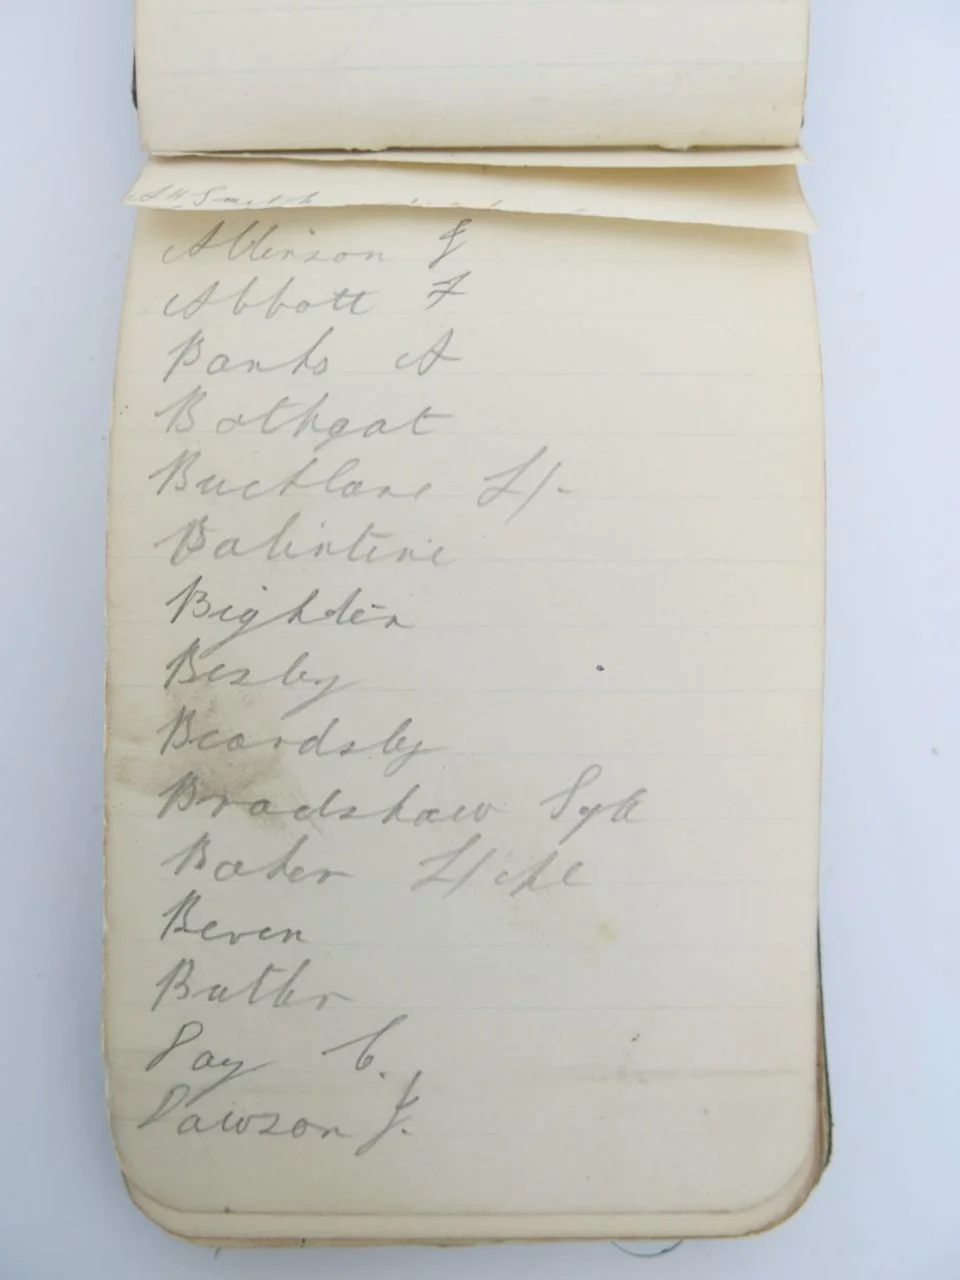 A H Smith
Atkinson J
Abbott F
Banks A
Bathgat
Buctlane L/-
Balintine
Bighten
Besby
Beardsley
Bradshaw Sgt
Baker L/cpl
Beven
Butler
Day C.
Dawson J.